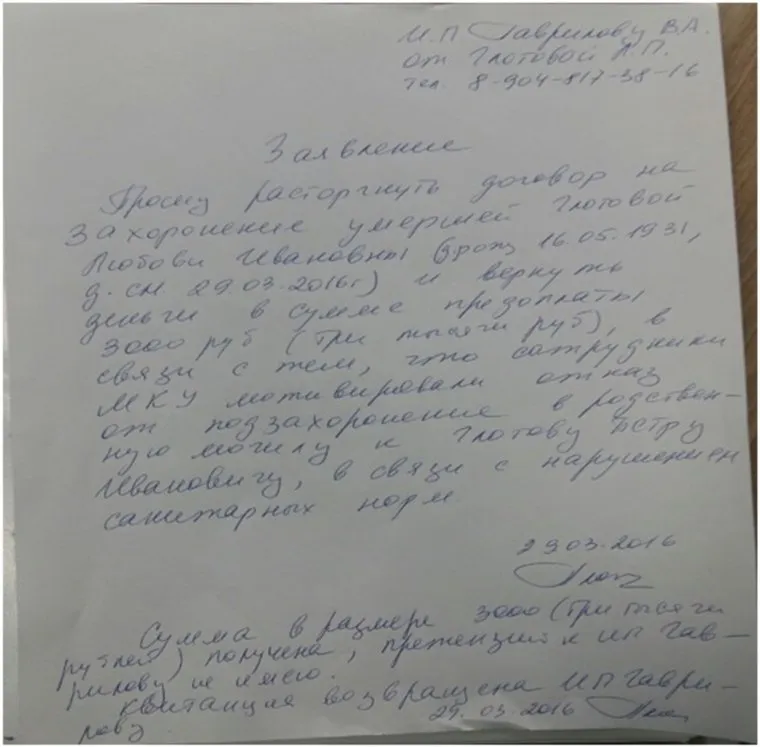 И.П Гаврилову В.А.
от Глотовой Л.П.
тел. 8-904-817-38-16
Заявление
Прошу расторгнуть договор на
захоронение умершей Глотовой
Любови Ивановны (рожд 16.05.1931,
д. см 29.03.2016г) и вернуть
деньги в сумме предоплаты
3000 руб (три тысячи руб), в
связи с тем, что сотрудники
МКУ мотивировали отказ
от подзахоронение в родствен-
ную могилу к Глотову Петру
Ивановичу, в связи с нарушением
санитарных норм.
29.03.2016
Сумма в размере 3000 (три тысячи
рублей) получена, претензий к ип Гав-
рилову не имею.
Квитанция возвращена ИП Гаври-
лову
29.03.2016